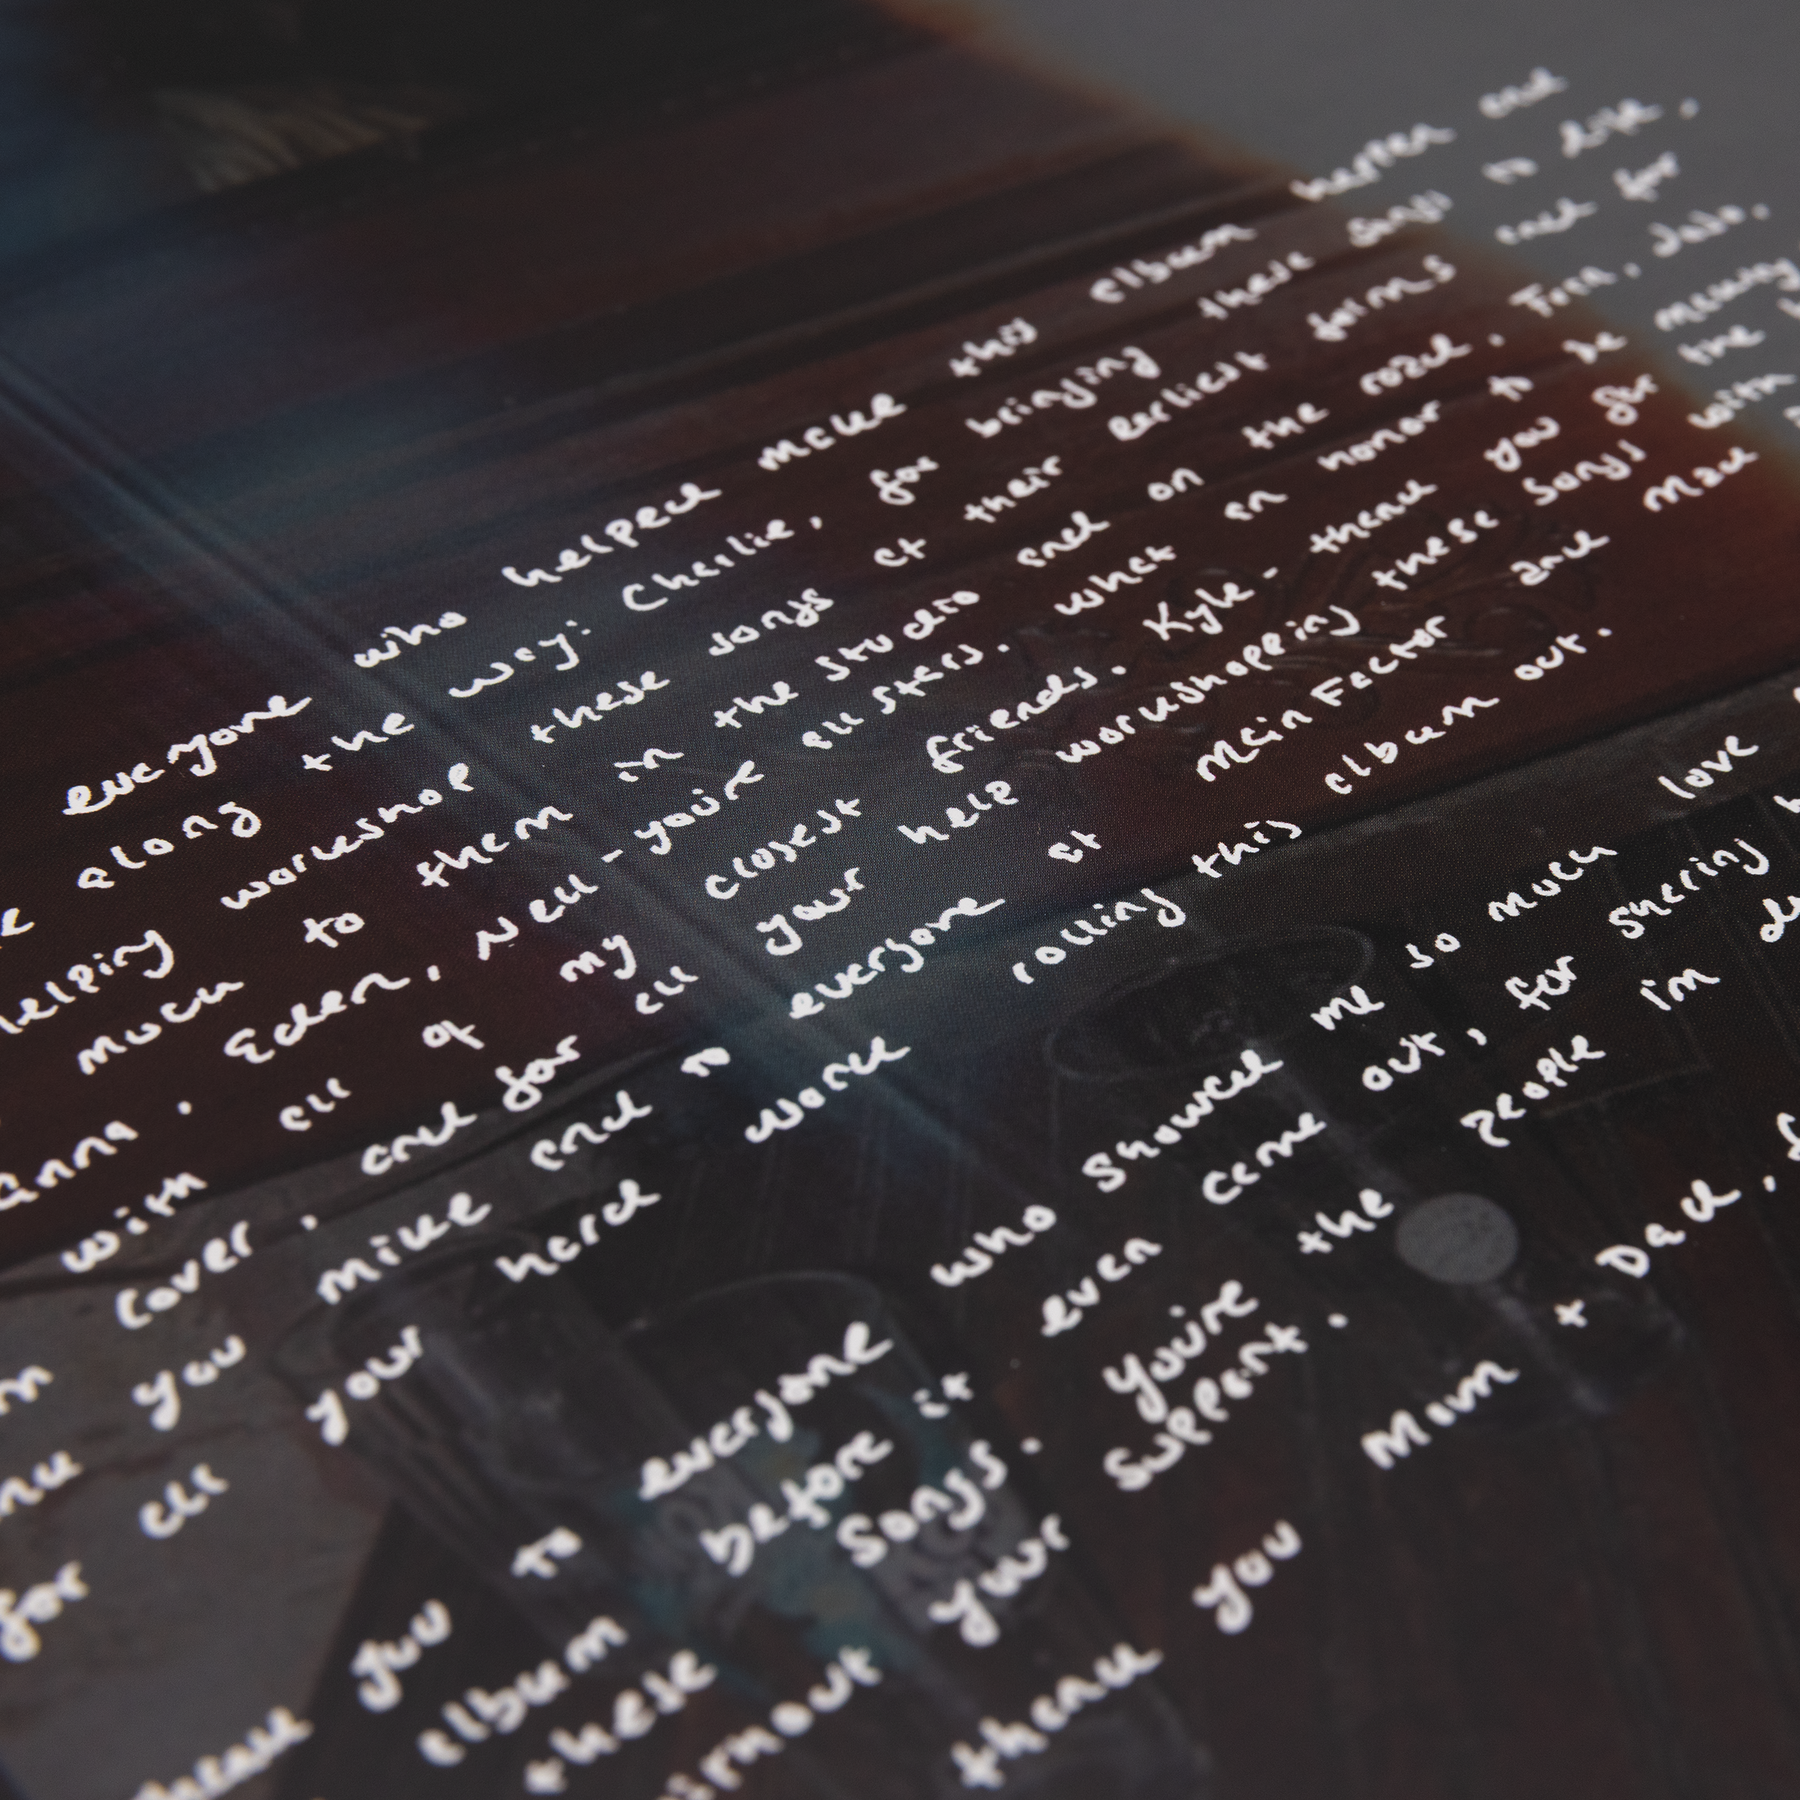 everyone who helped make this album happen and
along the way: Charlie, for bringing these songs to life,
helping workshop these songs at their earliest forms and for
much to them in the studio and on the road.
Eden, Nell - you're all stars. what an honor to be making
with all of my closest friends. Kyle - thank you for the
cover, and for all your help workshopping these songs with
you mike and to everyone at Main Factor and
for all your hard work rolling this album out.
thank you to everyone who showed me so much love
album before it even came out, for sharing
these songs. you're the people i'm
your support.
thank you Mom + Dad,